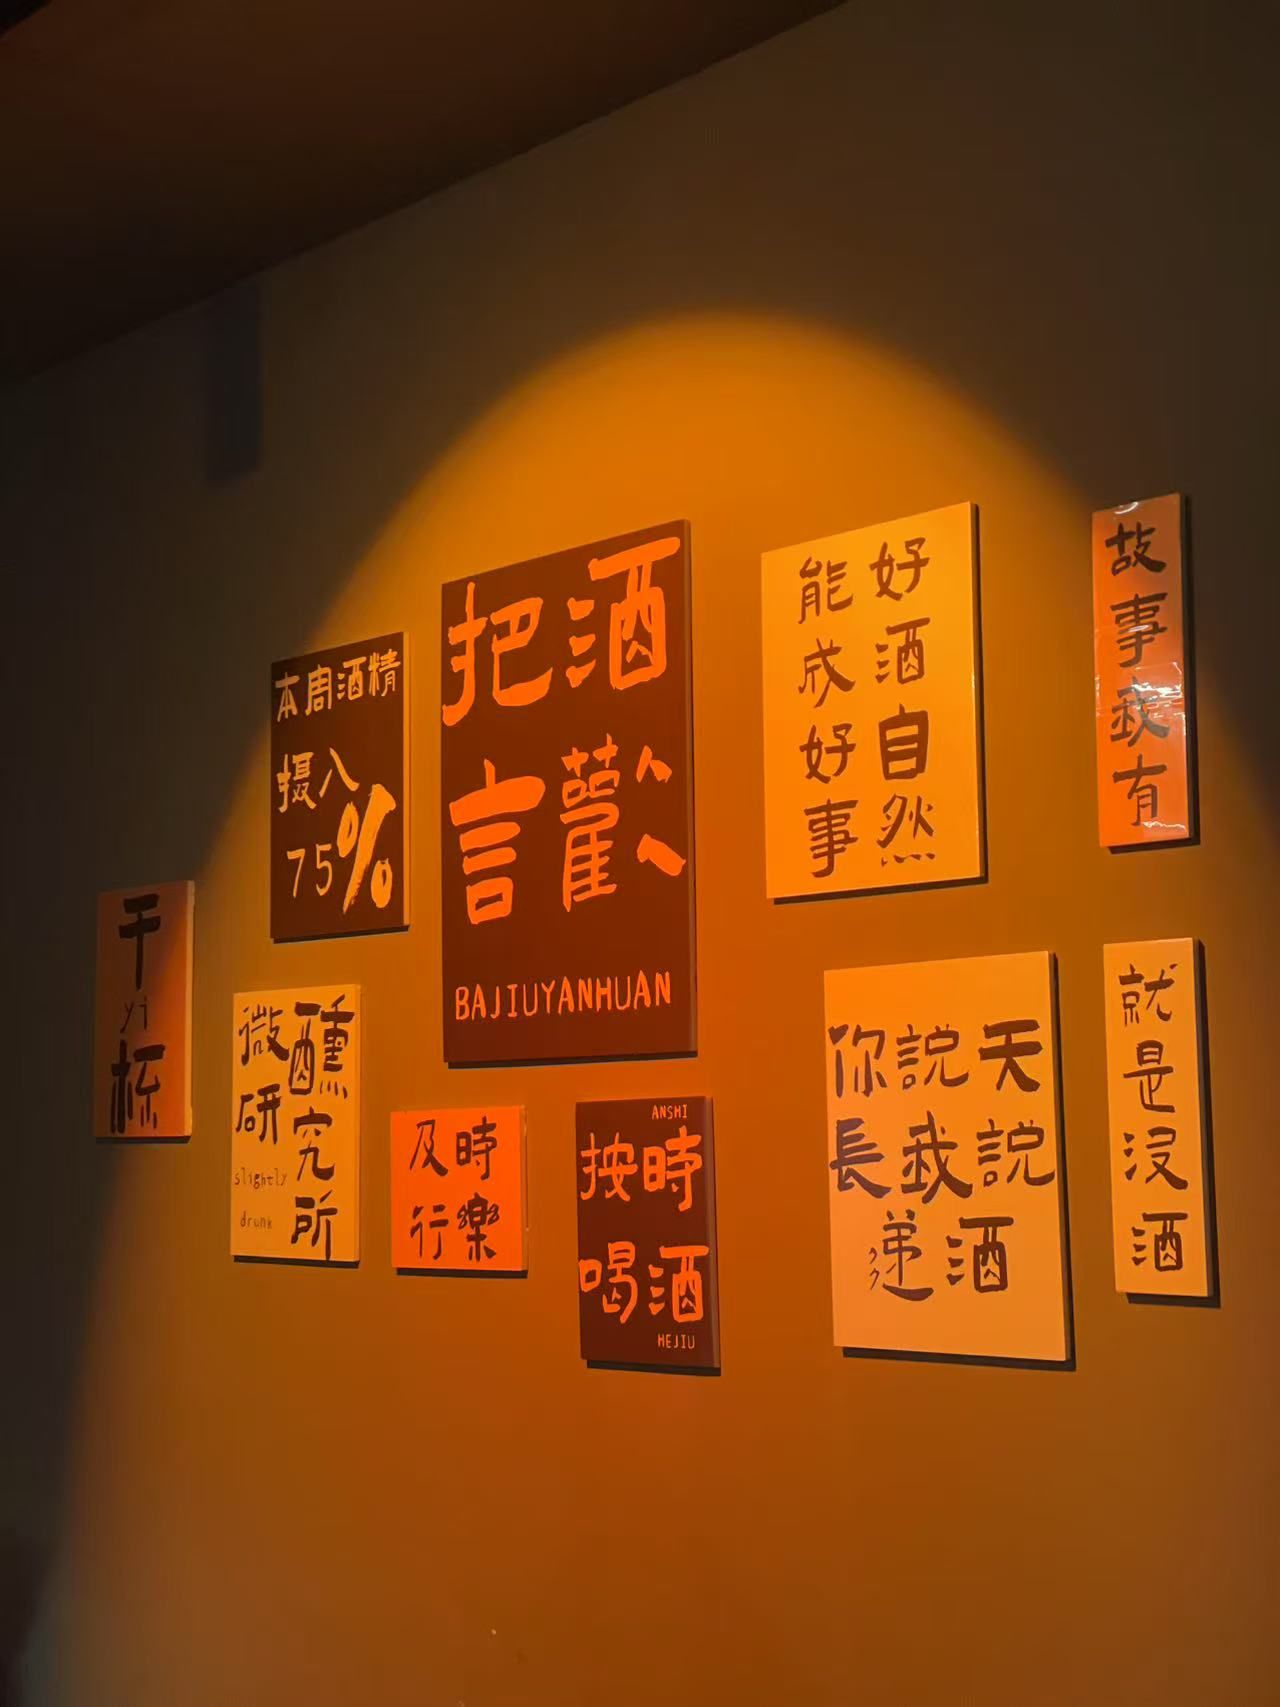 干
yi
杯
本周酒精
摄入
75%
微醺
研究
所
slightly
drunk
把酒
言歡
BAJIUYANHUAN
及時
行樂
ANSHI
按時
喝酒
HEJIU
好酒自然
能成好事
你說天
長我說
遞酒
故事我有
就是没酒